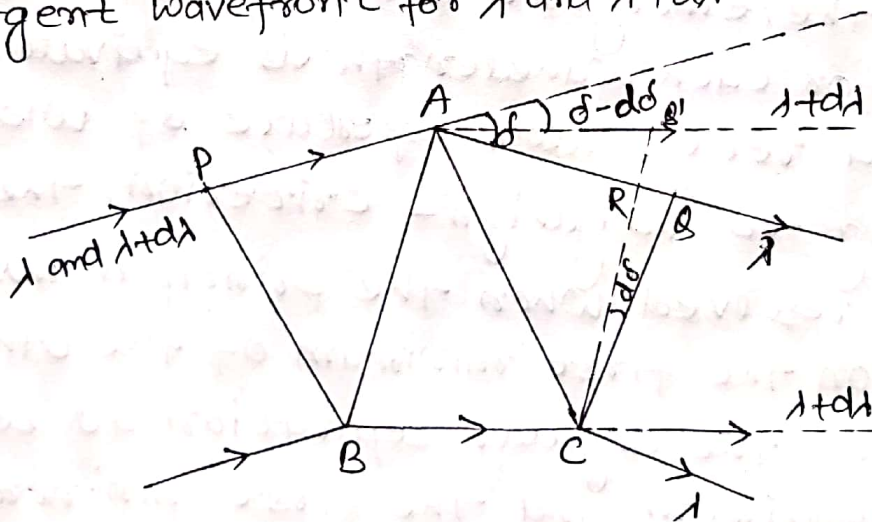 gent wavefront for λ and λ+dλ
A
δ-dδ
Q'
λ+dλ
δ
P
R
Q
λ and λ+dλ
λ
dδ
λ+dλ
B
C
λ